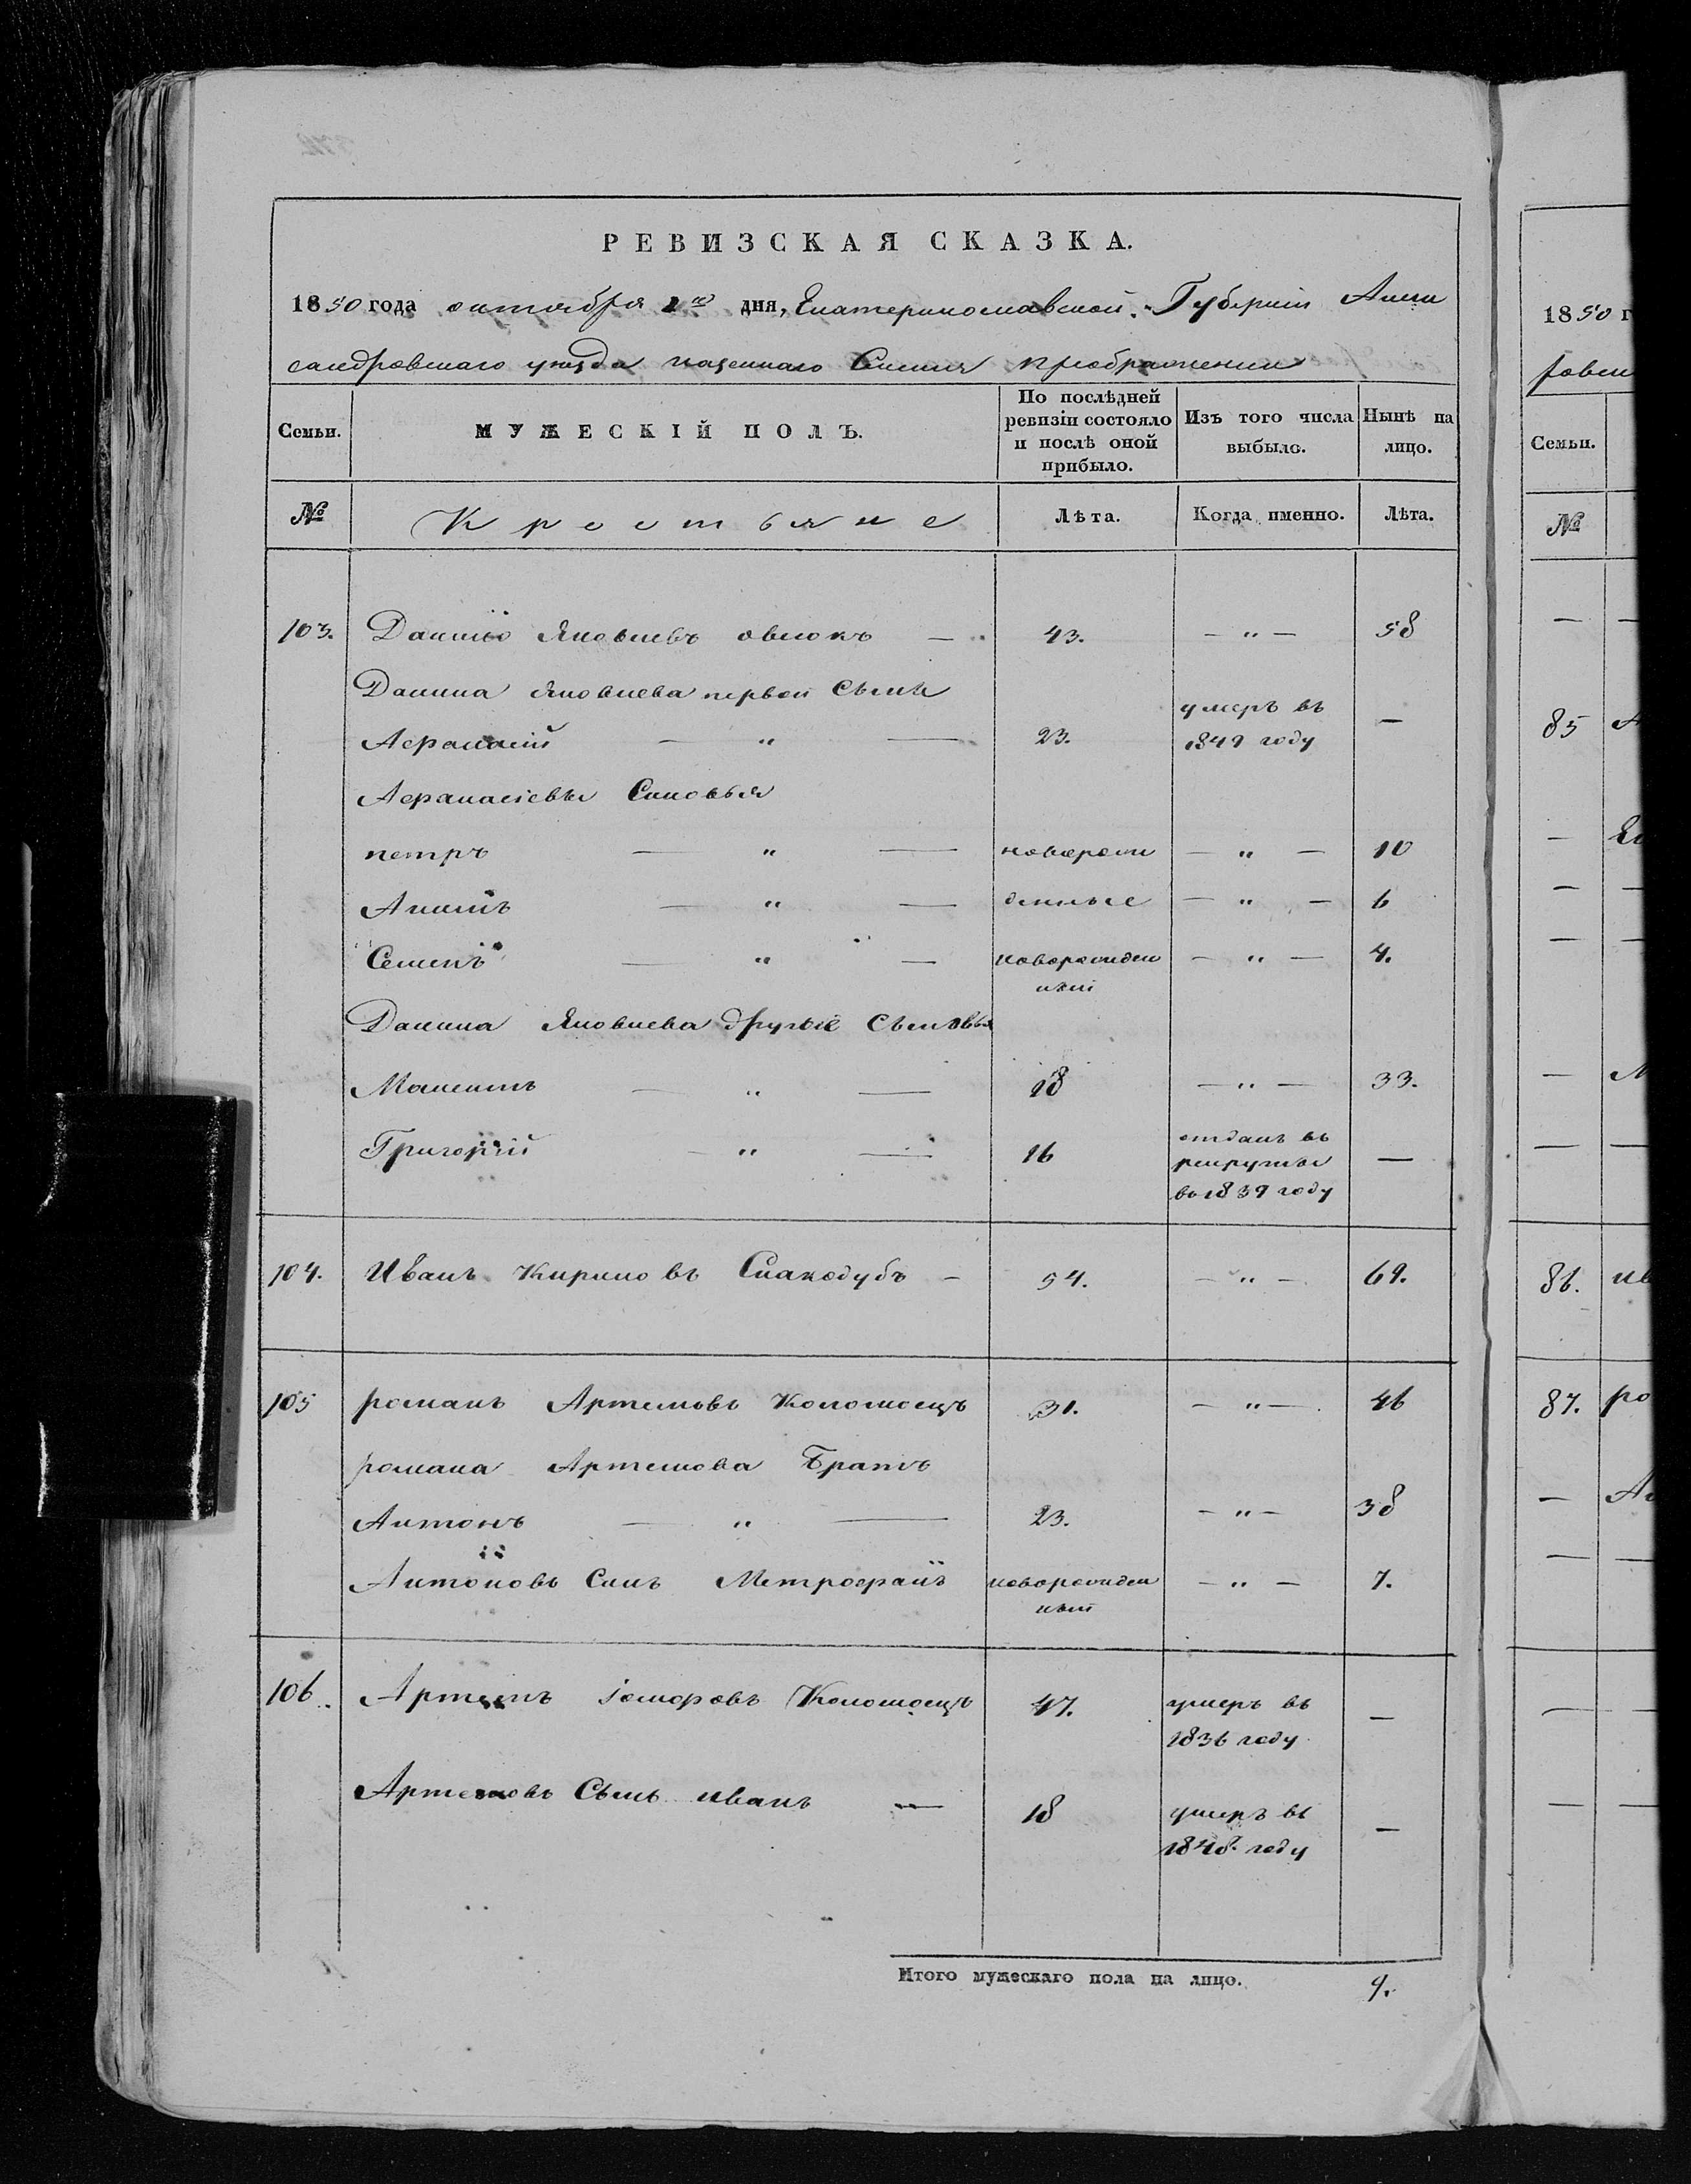 РЕВИЗСКАЯ СКАЗКА.
1850 года октября 1го дня, Екатеринославской Губернiи Алек
сандровскаго уезда казеннаго Селенiя преображенки
Семьи.
МУЖЕСКIЙ ПОЛЪ.
По послѣдней ревизiи состояло и послѣ оной прибыло.
Изъ того числа выбыло.
Нынѣ на лицо.
№ Крестьяне Лѣта. Когда именно. Лѣта.
103. Данило Яковлевъ — „ 43. — „ — 58
Данила Яковлева первой Сынъ
Афанасiй — „ — 23. умеръ въ 1849 году —
Афанасiевы Сыновья
петръ — „ — новорож — „ — 10
— „ — денные — „ — 6
Семенъ — „ — новорожден ный — „ — 4.
Данила Яковлева другiе Сыновья
Максимъ — „ — 18 — „ — 33.
Григорiй — „ — 16 отданъ въ рекруты въ 1839 году —
104. Иванъ Кириловъ — 54. — „ — 69.
105 романъ Артемовъ Коломоецъ 31. — „ — 46
романа Артемова Братъ
Антонъ — „ — 23. — „ — 38
Антоновъ Сынъ Метрофанъ новорожден ный — „ — 7.
106. Артемъ Коломоецъ 47. умеръ въ 1836 году —
Артемовъ Сынъ иванъ — 18 умеръ въ 1848 году —
Итого мужескаго пола на лицо. 9.
1850 г
Семьи.
№
85
86.
87. ро